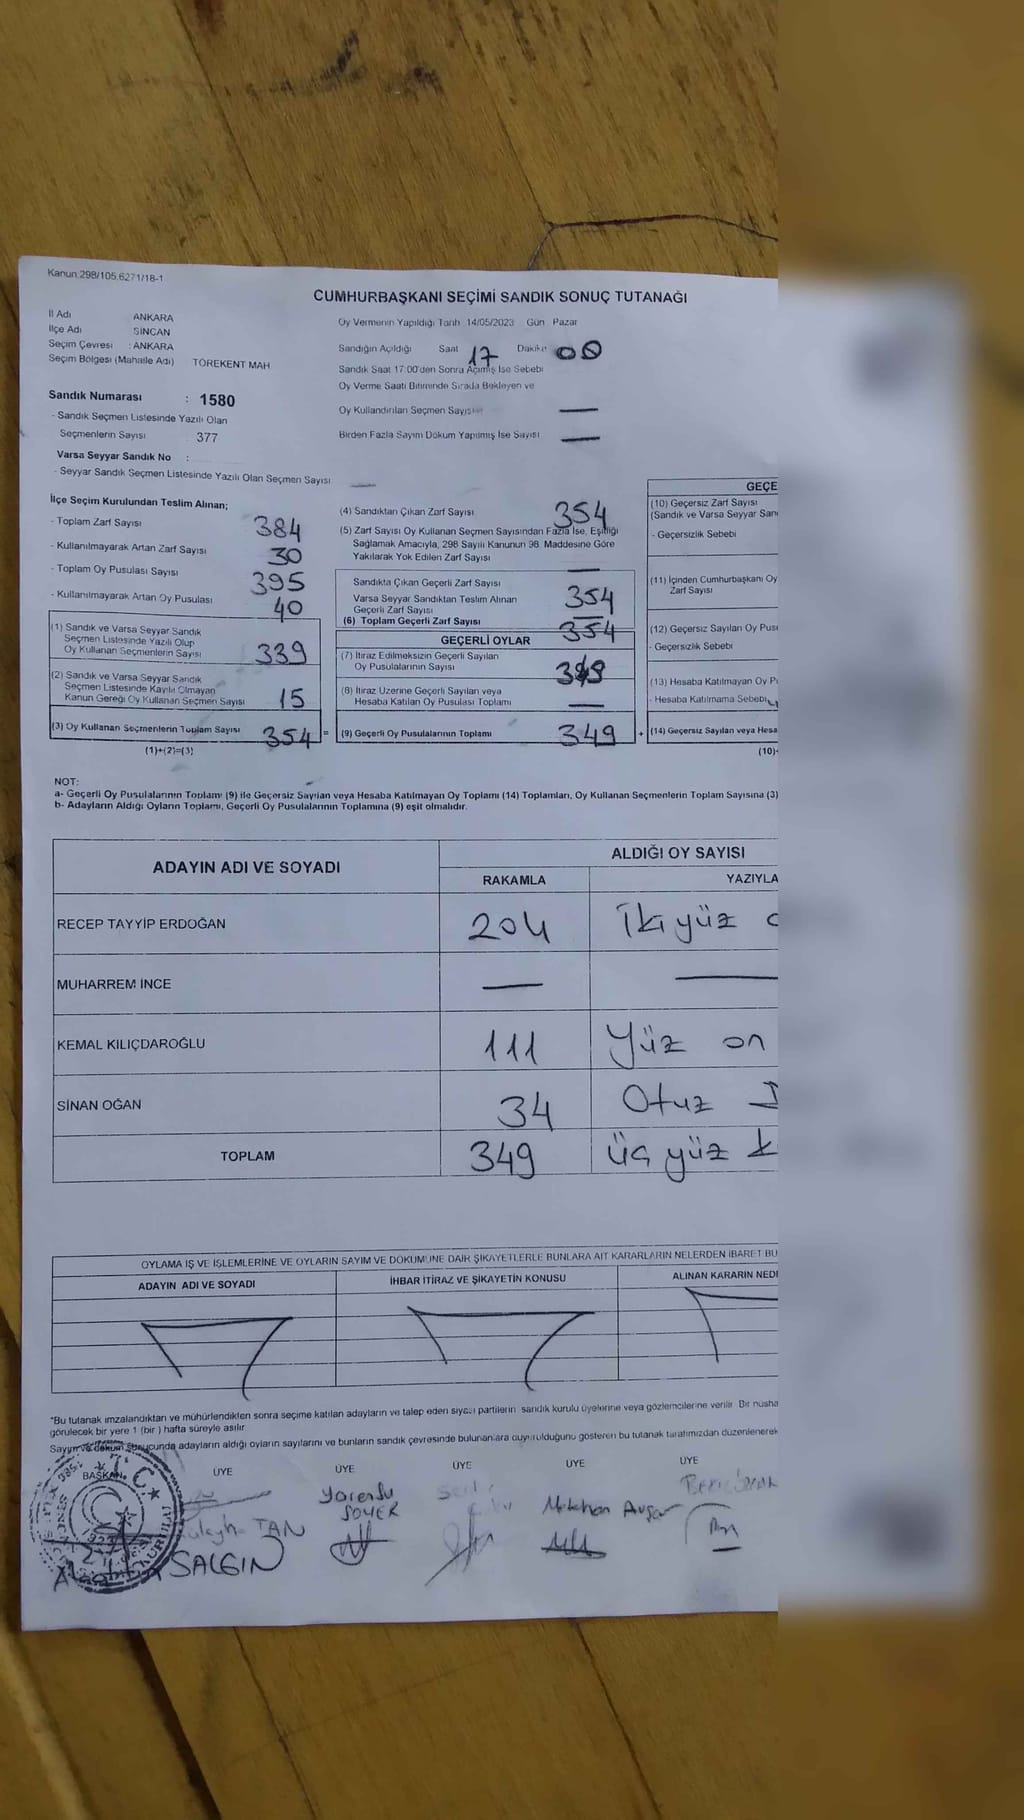 Kanun:298/105,6271/18-1
CUMHURBAŞKANI SEÇİMİ SANDIK SONUÇ TUTANAĞI
İl Adı ANKARA
İlçe Adı SİNCAN
Seçim Çevresi : ANKARA
Seçim Bölgesi (Mahalle Adı) TÖREKENT MAH
Oy Vermenin Yapıldığı Tarih 14/05/2023 Gün Pazar
Sandığın Açıldığı Saat 17 Dakika 00
Sandık Saat 17:00'den Sonra Açılmış İse Sebebi
Oy Verme Saati Bitiminde Sırada Bekleyen ve
Oy Kullandırılan Seçmen Sayısı —
Birden Fazla Sayım Döküm Yapılmış İse Sayısı —
Sandık Numarası : 1580
- Sandık Seçmen Listesinde Yazılı Olan
Seçmenlerin Sayısı 377
Varsa Seyyar Sandık No :
- Seyyar Sandık Seçmen Listesinde Yazılı Olan Seçmen Sayısı —
İlçe Seçim Kurulundan Teslim Alınan;
- Toplam Zarf Sayısı 384
- Kullanılmayarak Artan Zarf Sayısı 30
- Toplam Oy Pusulası Sayısı 395
- Kullanılmayarak Artan Oy Pusulası 40
(1) Sandık ve Varsa Seyyar Sandık
Seçmen Listesinde Yazılı Olup
Oy Kullanan Seçmenlerin Sayısı 339
(2) Sandık ve Varsa Seyyar Sandık
Seçmen Listesinde Kayıtlı Olmayan
Kanun Gereği Oy Kullanan Seçmen Sayısı 15
(3) Oy Kullanan Seçmenlerin Toplam Sayısı 354 =
(1)+(2)=(3)
(4) Sandıktan Çıkan Zarf Sayısı 354
(5) Zarf Sayısı Oy Kullanan Seçmen Sayısından Fazla İse, Eşitliği
Sağlamak Amacıyla, 298 Sayılı Kanunun 98. Maddesine Göre
Yakılarak Yok Edilen Zarf Sayısı —
Sandıkta Çıkan Geçerli Zarf Sayısı 354
Varsa Seyyar Sandıktan Teslim Alınan
Geçerli Zarf Sayısı —
(6) Toplam Geçerli Zarf Sayısı 354
GEÇERLİ OYLAR
(7) İtiraz Edilmeksizin Geçerli Sayılan
Oy Pusulalarının Sayısı 349
(8) İtiraz Üzerine Geçerli Sayılan veya
Hesaba Katılan Oy Pusulası Toplamı —
(9) Geçerli Oy Pusulalarının Toplamı 349 +
GEÇE
(10) Geçersiz Zarf Sayısı
(Sandık ve Varsa Seyyar San
- Geçersizlik Sebebi
(11) İçinden Cumhurbaşkanı Oy
Zarf Sayısı
(12) Geçersiz Sayılan Oy Pus
- Geçersizlik Sebebi
(13) Hesaba Katılmayan Oy P
- Hesaba Katılmama Sebebi
(14) Geçersiz Sayılan veya Hesa
(10)+
NOT:
a- Geçerli Oy Pusulalarının Toplamı (9) ile Geçersiz Sayılan veya Hesaba Katılmayan Oy Toplamı (14) Toplamları, Oy Kullanan Seçmenlerin Toplam Sayısına (3)
b- Adayların Aldığı Oyların Toplamı, Geçerli Oy Pusulalarının Toplamına (9) eşit olmalıdır.
ADAYIN ADI VE SOYADI ALDIĞI OY SAYISI
RAKAMLA YAZIYLA
RECEP TAYYİP ERDOĞAN 204 İki yüz
MUHARREM İNCE — —
KEMAL KILIÇDAROĞLU 111 Yüz on
SİNAN OĞAN 34 Otuz
TOPLAM 349 üç yüz
OYLAMA İŞ VE İŞLEMLERİNE VE OYLARIN SAYIM VE DÖKÜMÜNE DAİR ŞİKAYETLERLE BUNLARA AİT KARARLARIN NELERDEN İBARET BU
ADAYIN ADI VE SOYADI İHBAR İTİRAZ VE ŞİKAYETİN KONUSU ALINAN KARARIN NEDİ
*Bu tutanak imzalandıktan ve mühürlendikten sonra seçime katılan adayların ve talep eden siyasi partilerin sandık kurulu üyelerine veya gözlemcilerine verilir. Bir nüsha
görülecek bir yere 1 (bir ) hafta süreyle asılır
Sayım ve döküm sonucunda adayların aldığı oyların sayılarını ve bunların sandık çevresinde bulunanlara duyurulduğunu gösteren bu tutanak tarafımızdan düzenlenerek
BAŞKAN ÜYE ÜYE ÜYE ÜYE ÜYE
T.C.
Yarensu
SOYER
TAN
SALGIN
Metehan Avşar